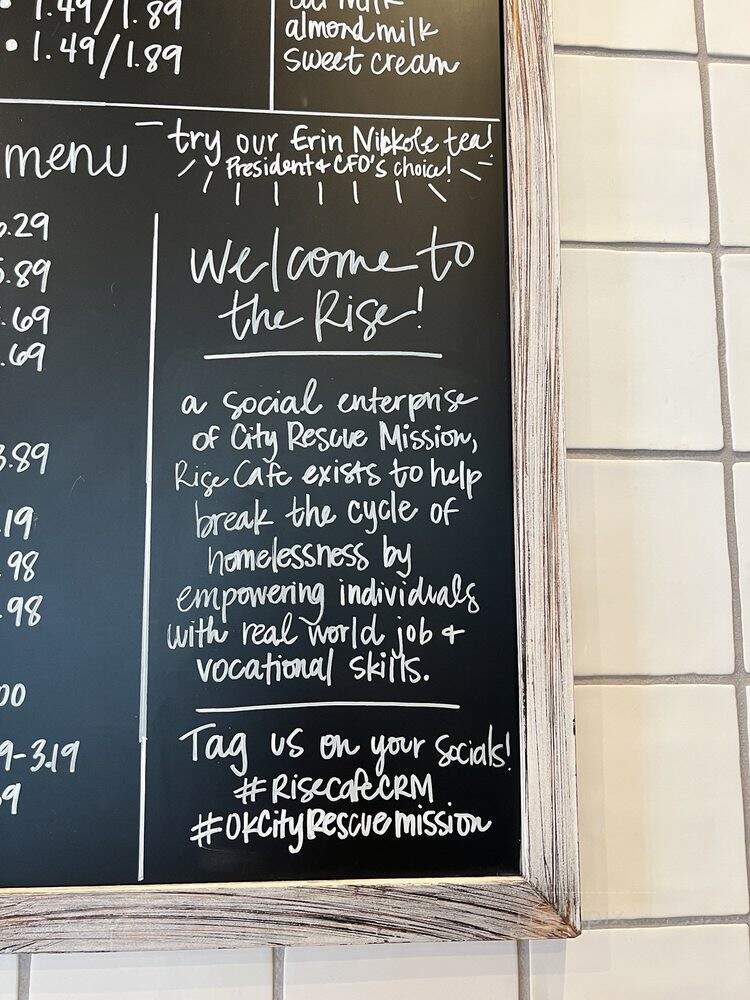 1.49/1.89
• 1.49/1.89
almond milk
sweet cream
menu
try our Erin Nickole tea!
President & CFO's choice!
.29
.89
.69
.69
3.89
.19
.98
.98
00
9-3.19
9
Welcome to
the Rise!
a social enterprise
of City Rescue Mission,
Rise Cafe exists to help
break the cycle of
homelessness by
empowering individuals
with real world job &
vocational skills.
Tag us on your socials!
#RiseCafeCRM
#OKCityRescuemission